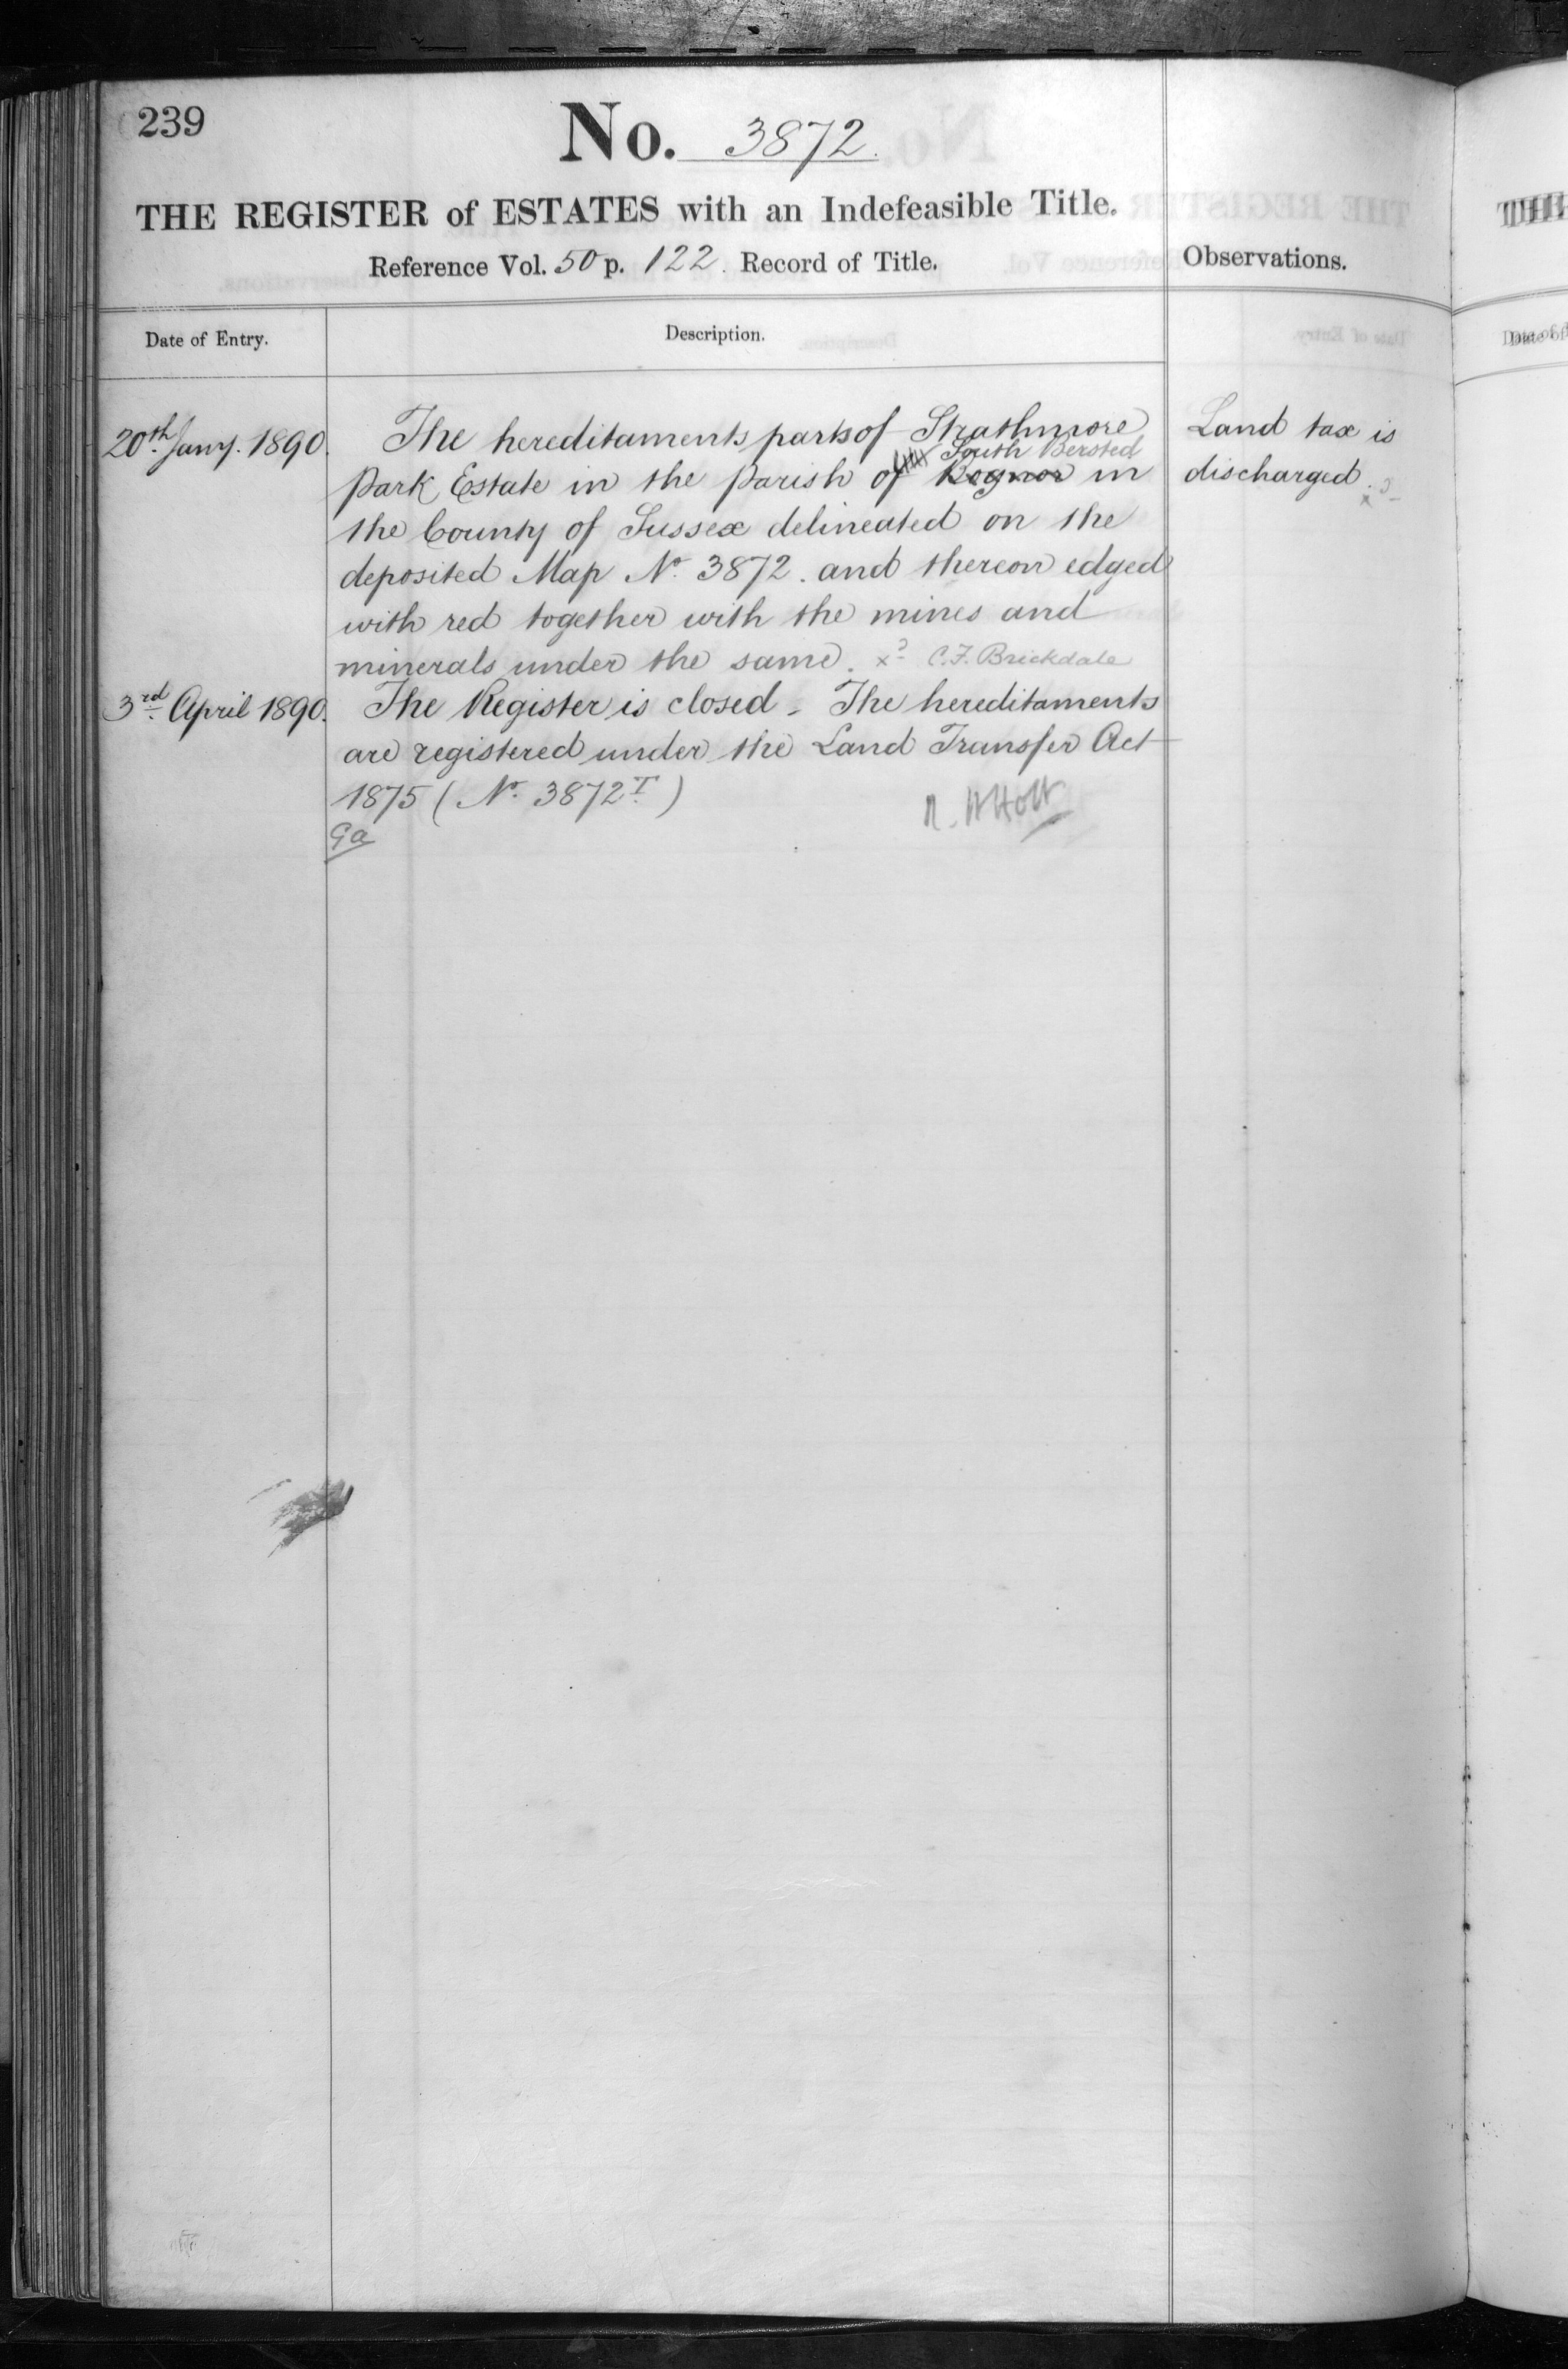 239
No. 3872.
THE REGISTER of ESTATES with an Indefeasible Title.
Reference Vol. 50 p. 122. Record of Title.
Observations.
Date of Entry.
Description.
20th Jany. 1890.
The hereditaments parts of Strathmore
South Bersted
Park Estate in the Parish of Bognor in
the County of Sussex delineated on the
deposited Map No. 3872. and thereon edged
with red together with the mines and
minerals under the same. C.F. Brickdale
Land tax is
discharged.
3rd April 1890.
The Register is closed - The hereditaments
are registered under the Land Transfer Act
1875 (No. 3872T.)